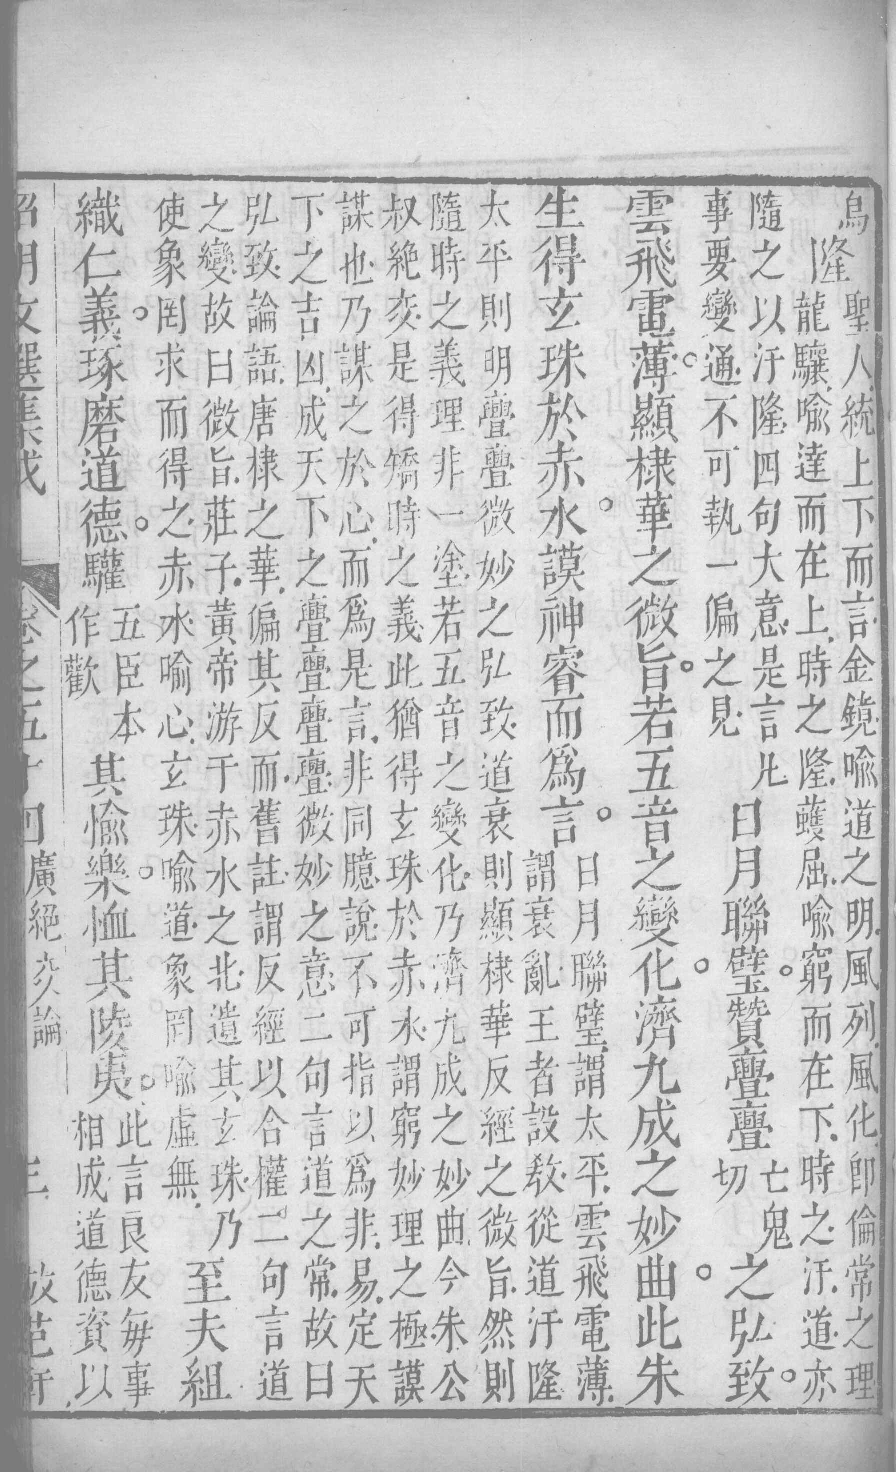 烏隆聖人統上下而言金鏡喩道之明風列風化即倫常之理
龍驤喩達而在上時之隆蠖屈喩窮而在下時之汙道亦
隨之以汙隆四句大意是言
事要變通不可執一偏之見
日月聯璧贊亹亹
亡鬼
切
之弘致
雲飛電薄顯棣華之微旨若五音之變化濟九成之妙曲此朱
生得玄珠於赤水謨神睿而爲言
日月聯璧謂太平雲飛電薄
謂衰亂王者設教從道汙隆
太平則明亹亹微妙之弘致道衰則顯棣華反經之微旨然則
隨時之義理非一塗若五音之變化乃濟九成之妙曲今朱公
叔絶交是得矯時之義此猶得玄珠於赤水謂窮妙理之極謨
謀也乃謀之於心而爲是言非同臆說不可指以爲非易定天
下之吉凶成天下之亹亹亹亹微妙之意二句言道之常故曰
弘致論語唐棣之華偏其反而舊註謂反經以合權二句言道
之變故曰微旨莊子黃帝游于赤水之北遺其玄珠乃
使象罔求而得之赤水喻心玄珠喩道象罔喩虛無
至夫組
織仁義琢磨道德驩
五臣本
作歡
其愉樂恤其陵夷
此言良友每事
相成道德資以
昭明文選集成
卷之五十四
廣絶交論
三